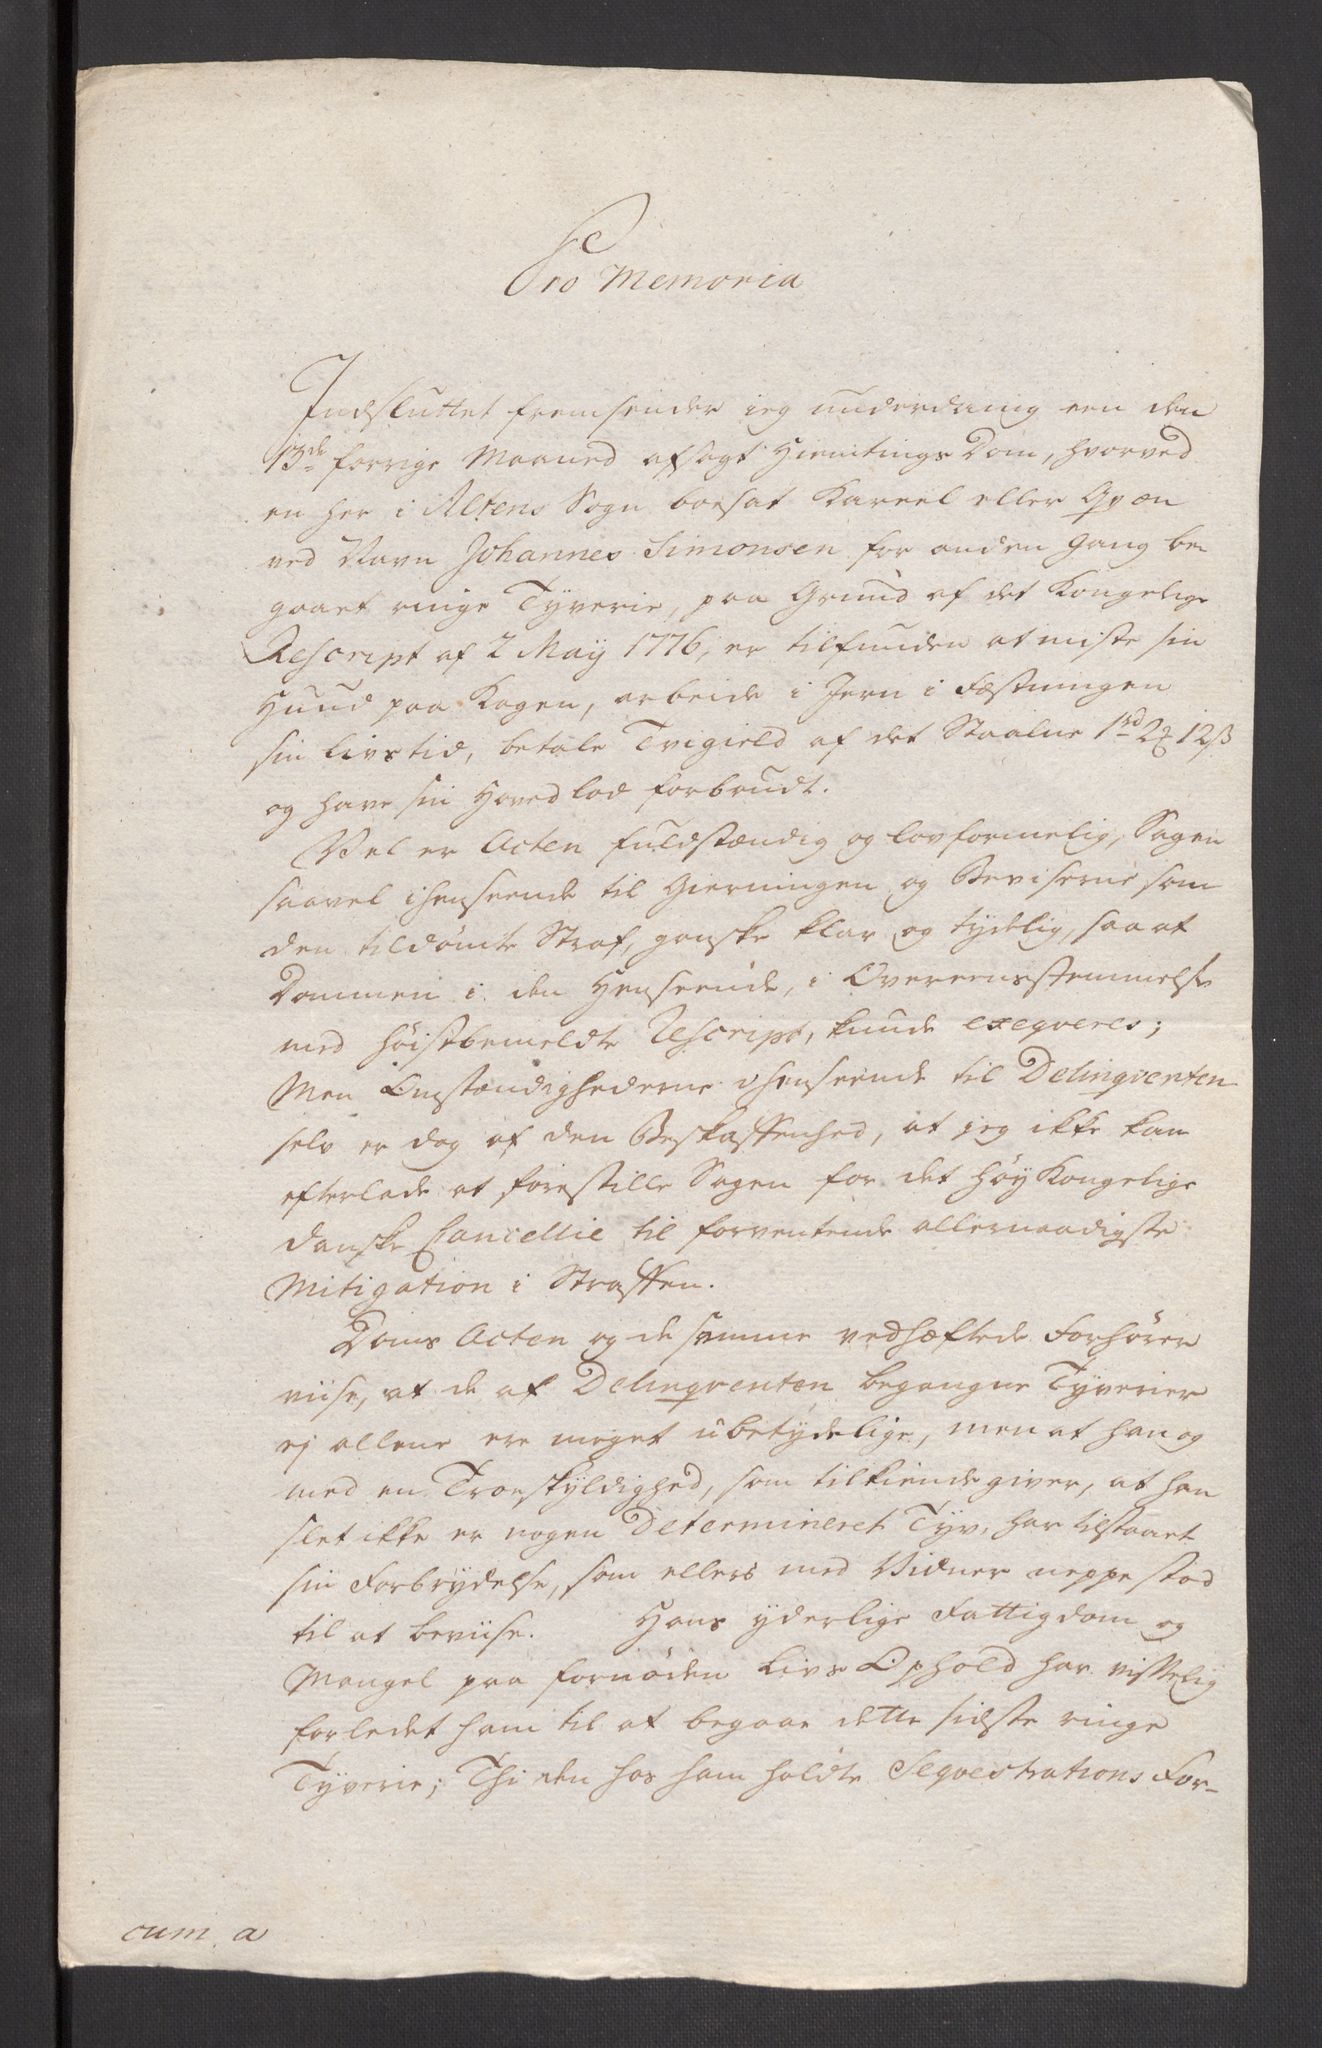 Pro Memoria
Indsluttet fremsender ieg underdanig een den
13de forrige Maaned afsagt Hiemtings Dom, hvorved
en her i Altens Sogn boesat Kareel eller Qvæn
ved Navn Johannes Simonsen for anden Gang be-
gaaet ringe Tyverie, paa Grund af det Kongelige
Rescript af 2 Maij 1776, er tilfunden at miste sin
Huud paa Kagen, arbeide i Jern i Fæstningen
sin Livs tid, betale Tvigield af det Staalne 1rd 2 12 β
og have sin Hovedlod forbrudt.
Vel er Acten fuldstændig og lovformelig, Sagen
saavel i henseende til Gierningen og Beviserne som
den tildømte Straf, ganske klar og tydelig, saa at
Dommen i den Henseende, i Overeensstemmelse
med høistbemeldte Rescript, kunde exeqveres;
Men Omstændighederne i henseende til Delinqventen
selv er dog af den Beskaffenhed, at jeg ikke kan
efterlade at forestille Sagen for det høy Kongelige
danske Cancellie til forventende allernaadigste
Mitigation i Straffen.
Doms Acten og de samme vedhæftede Forhører
viise, at de af Delinqventen begangne Tyverier
ej allene ere meget ubetydelige, men at han og
med en Troeskyldighed, som tilkiendegiver, at han
slet ikke er nogen determineret Tyv, har tilstaaet
sin Forbrydelse, som ellers med Vidner neppe stod
til at beviise. Hans yderlige Fattigdom og
Mangel paa fornøden Livs Ophold har visselig
forledet ham til at begaae dette sidste ringe
Tyverie; Thi den hos ham holdte Seqvestrations For-
cum a